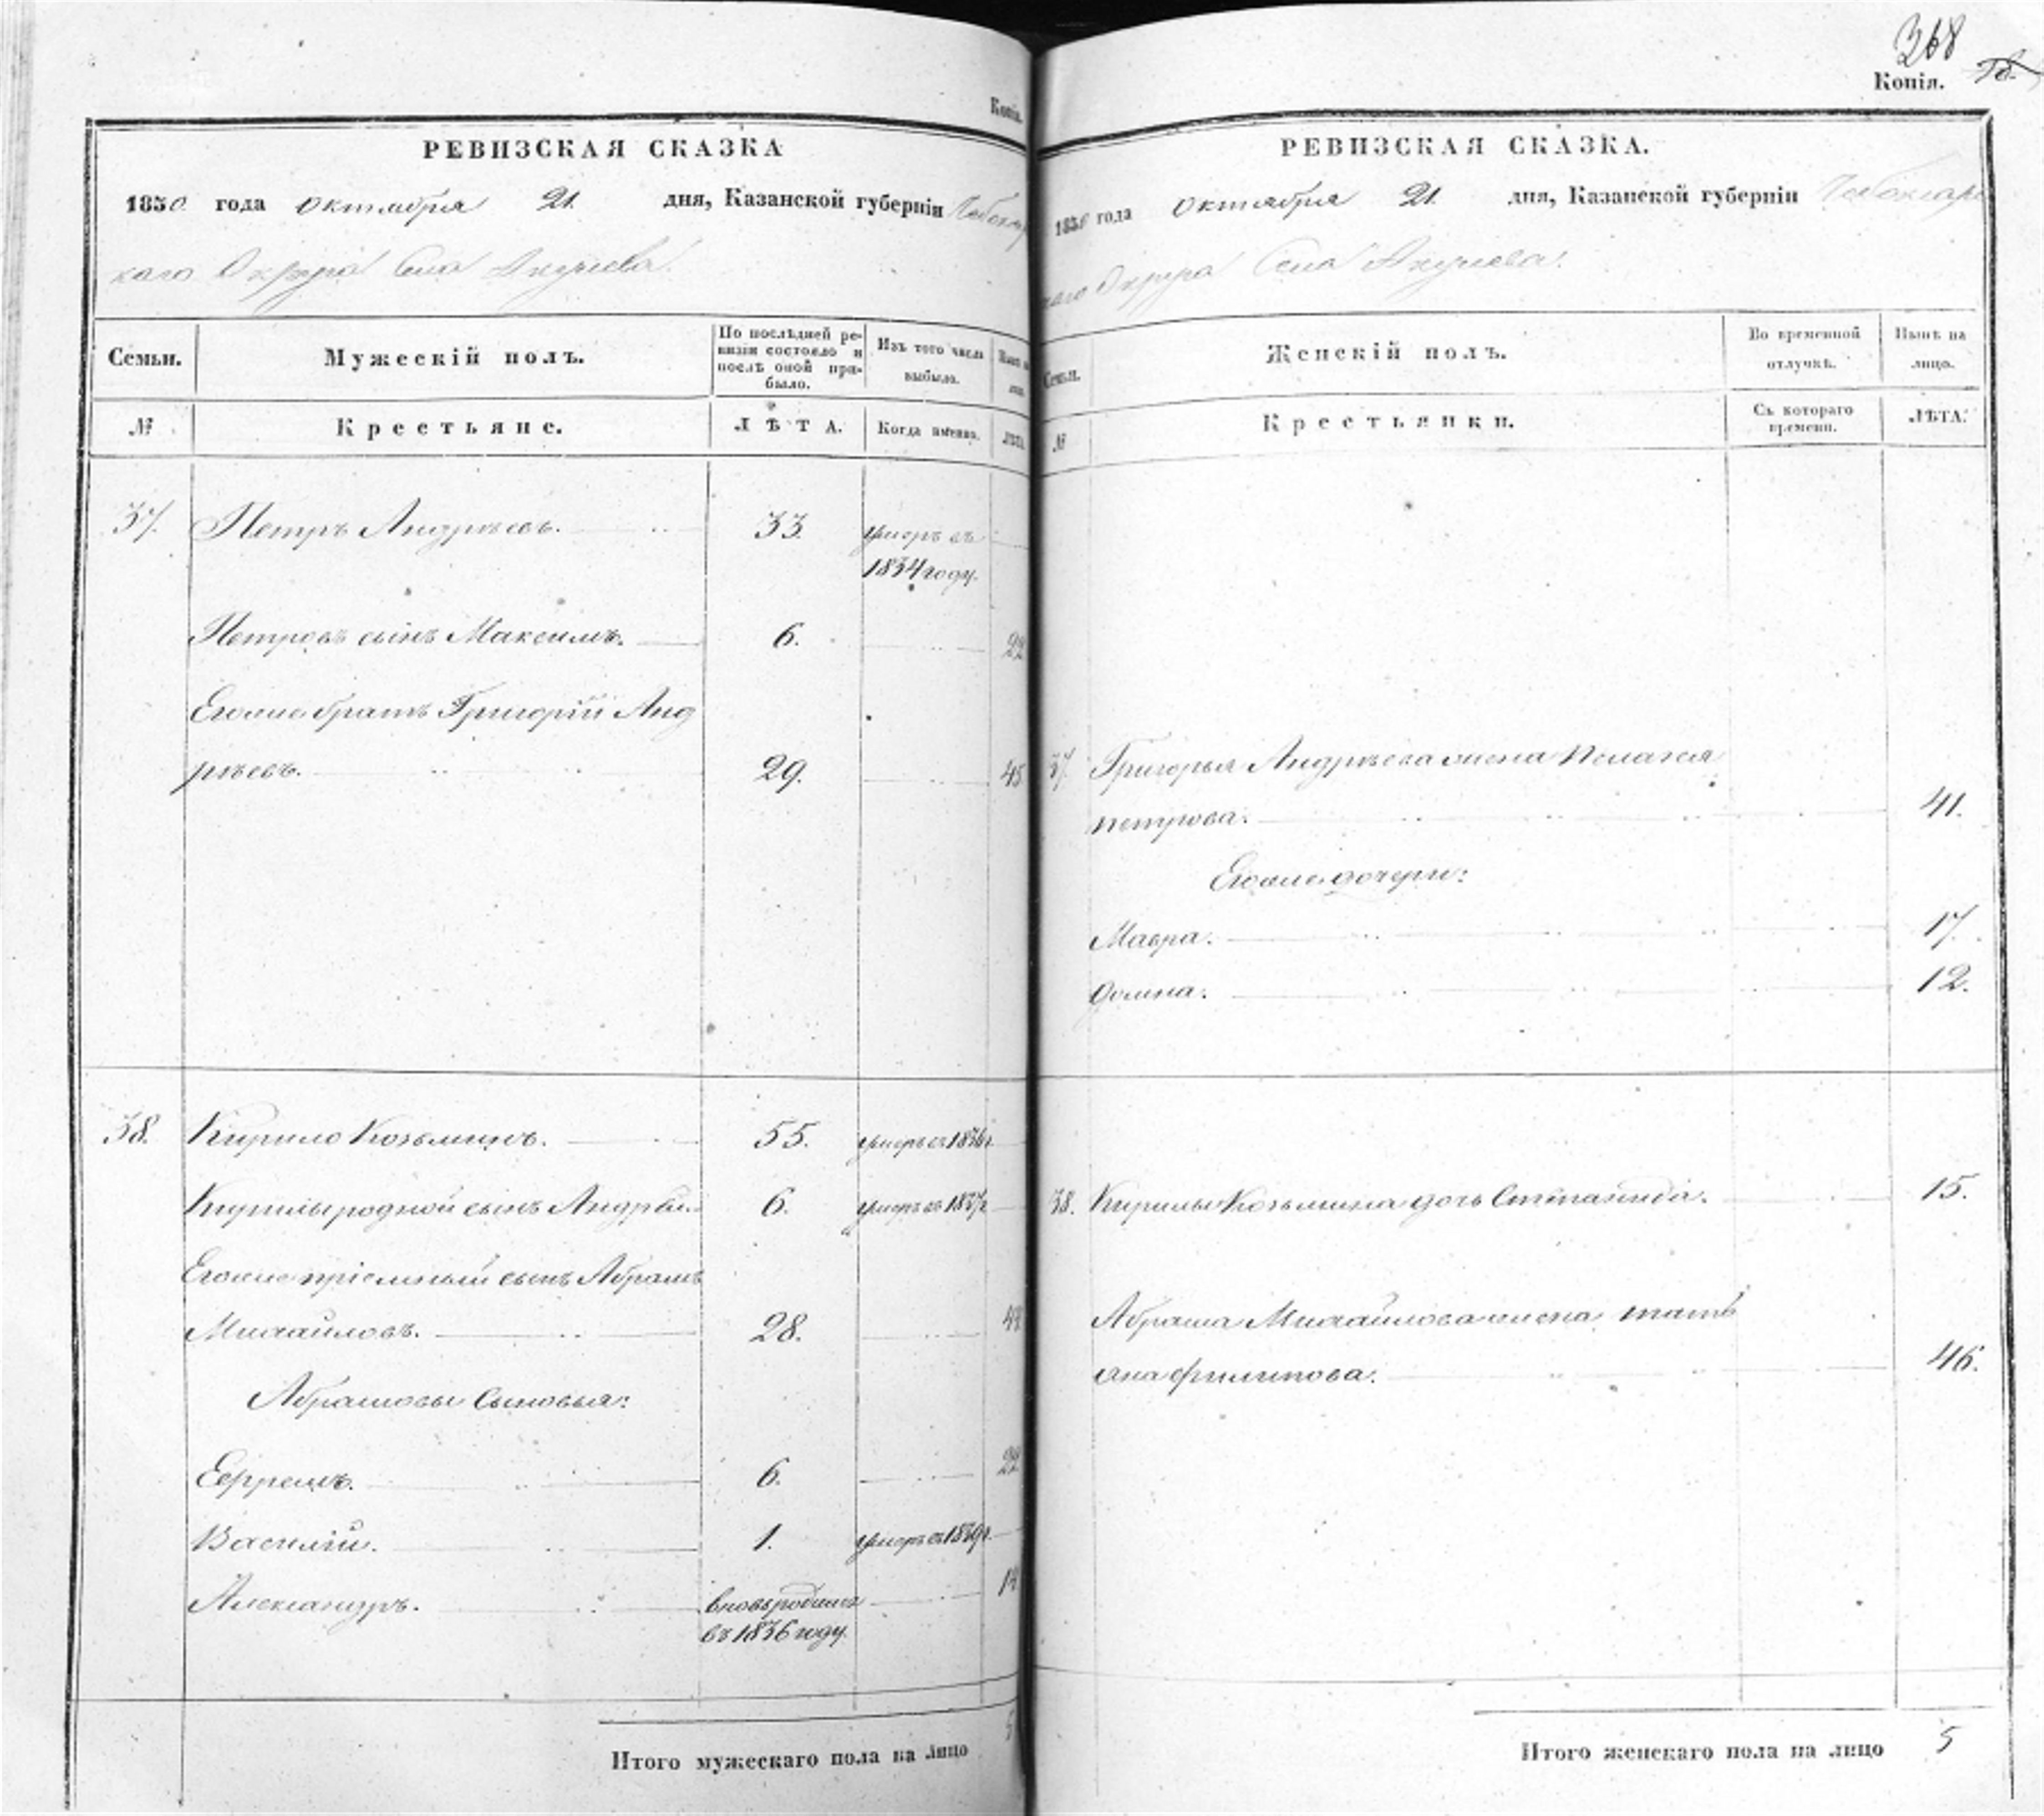 Копія.
РЕВИЗСКАЯ СКАЗКА
1850 года Октября 21. дня, Казанской губерніи Чебокса
каго Округа Села
Семьи.
Мужескій полъ.
По послѣдней ре-
визіи состояло и
послѣ оной при-
было.
Изъ того числа
выбыло.
№
Крестьяне.
ЛѢТА.
Когда именно.
ЛѢТА
37. Петръ Андрѣевъ. 33. умеръ въ
1834 году.
Петровъ сынъ Максимъ. 6. 22
Егоже братъ Григорій Анд
рѣевъ. 29. 45
38. Кирило Козьминъ. 55. умеръ въ 1836 г.
Кирилы родной сынъ Андрей. 6. умеръ въ 1837 г.
Егоже пріемный сынъ Абрамъ
Михайловъ. 28. 44
Абрамовы сыновья:
Ефремъ. 6. 22
Василій. 1. умеръ въ 1839 г.
Александръ. вновь родился 14
въ 1836 году.
Итого мужескаго пола на лицо 5
368
Копія.
РЕВИЗСКАЯ СКАЗКА.
1850 года Октября 21. дня, Казанской губерніи Чебоксарс
каго Округа Села
Семьи.
Женскій полъ.
Во временной
отлучкѣ.
Нынѣ на
лицо.
№
Крестьянки.
Съ котораго
времени.
ЛѢТА.
37. Григорья Андрѣева жена Пелагея
Петрова. 41.
Егоже дочери:
Мавра. 17.
Домна. 12.
38. Кирилы Козьмина дочь Степанида. 15.
Абрама Михайлова жена Тать
яна Филипова. 46.
Итого женскаго пола на лицо 5